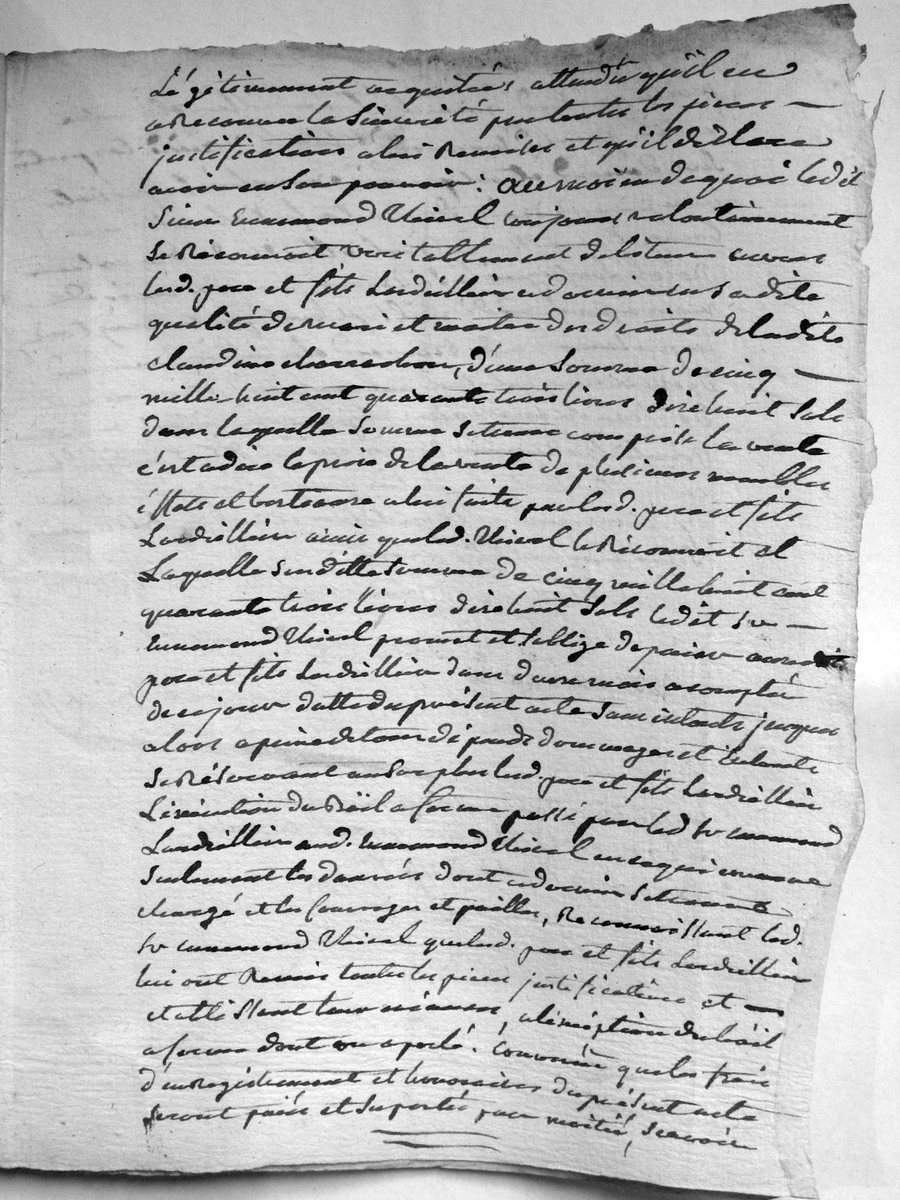 Légitimement acquitées attendu qu'il en
a Reconnu la Sincerité par toutes les pieces
justificatives a lui Remises et qu'il declare
avoir en Son pouvoir : au moien de quoi ledit
Sieur Ennemond Thival
Se Reconnoit veritablement debiteur envers
lesd. pere et fils Lardellier ce dernier en Sadite
qualité de mari et maitre des droits de ladite
claudine, d'une Somme de cinq
mille huit cent quarante trois livres dix huit Sols
dans laquelle Somme Se trouve comprise la vente
c'est a dire le prix de la vente de plusieurs meubles
effets et besteaux a lui faite par lesd. pere et fils
Lardellier ainsi que led. Thival le Reconnoit et
Laquelle Susditte Somme de cinq mille huit cent
quarante trois livres dix huit Sols ledit Sr
Ennemond Thival promet et Soblige de paier auxdits
pere et fils Lardellier dans deux mois a compter
de ce jour datte du présent acte Sans interets jusques
alors a peine de tous dépends dommages et interets
Se Réservant au Surplus lesd. pere et fils Lardellier
L'exécution du Bail a ferme passé par led Sr ennemond
Lardellier aud. Ennemond Thival en ce qui concerne
Seulement les denrées dont ce dernier Se trouve
chargé et les fourrages et pailles, Reconnoissant led.
Sr ennemond Thival que lesd. pere et fils Lardellier
lui ont Remis toutes les pieces justificatives et
etablissant leur créances, a l'exception du bail
a ferme dont on a parlé. convenu que les frais
d'enregistrement et honoraires du présent acte
Seront paiés et Suportés par moitié, Scavoir